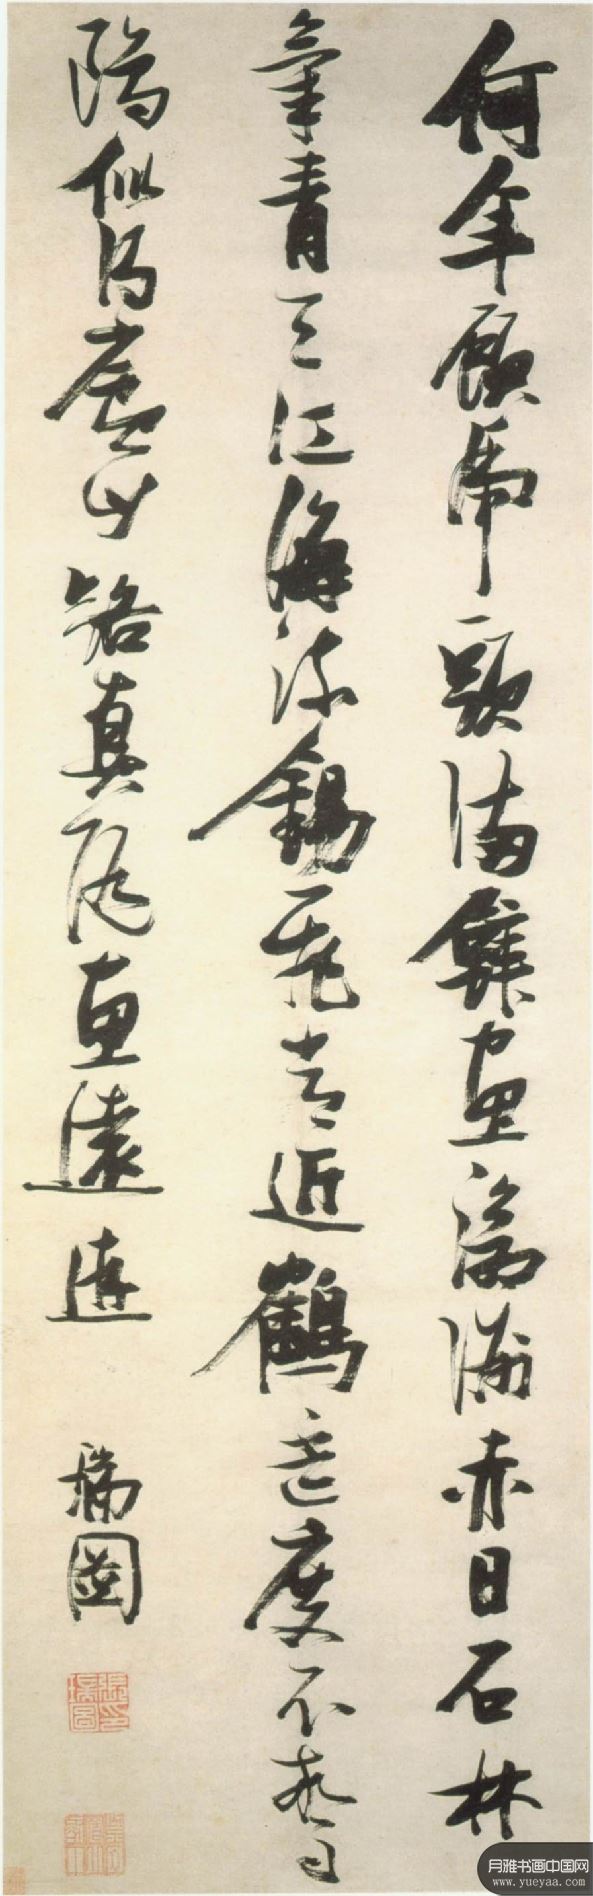 何年顧虎頭滿壁畫滄洲赤日石林
氣青天江海流錫飛常近鶴杯度不驚
鷗似得廬山路真隨惠遠遊
瑞圖
月雅书画中国网
www.yueyaa.com